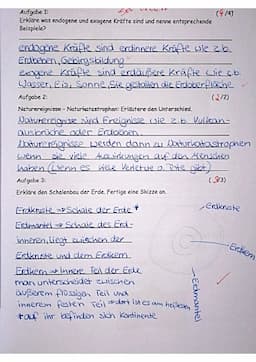 Aufgabe 1: (4/4)
Erkläre was endogene und exogene Kräfte sind und nenne entsprechende
Beispiele?
endogene Kräfte sind erdinnere Kräfte wie z.b.
Erdbeben, Gebirgsbildung
exogene Kräfte sind erdäußere Kräfte wie z.b.
Wasser, Eis, Sonne, Sie gestalten die Erdoberfläche
Aufgabe 2: (2/2)
Naturereignisse - Naturkatastrophen: Erläutere den Unterschied.
Naturereignise sind Ereignisse wie z.b. Vulkan-
ausbrüche oder Erdbeben.
Naturereignisse werden dann zu Naturkatastrophen
wenn sie viele Auswirkungen auf den Menschen
haben (Wenn es viele Verletze o. Tote gibt)
Aufgabe 3: (3/3)
Erkläre den Schalenbau der Erde. Fertige eine Skizze an.
Erdkruste → Schale der Erde *
Erdmantel → Schale des Erd-
inneren, liegt zwischen der
Erdkruste und dem Erdkern
Erdkern → Innere Teil der Erde
man unterscheidet zwischen
äußerem flüssigen Teil und
innerem festen Teil → dort ist es am heißesten
* auf ihr befinden sich Kontinente
Erdkruste
Erdkern
Erdmantel